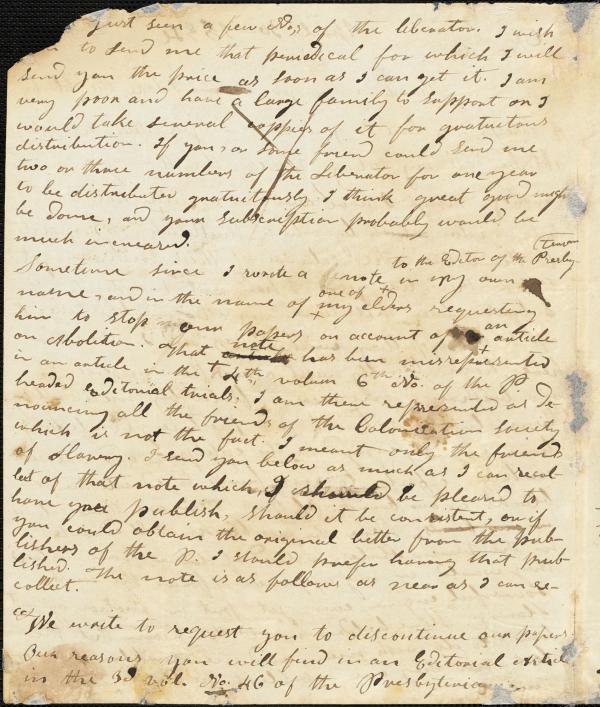 just seen a few Nos of the liberator. I wish
to send me that periodical for which I will
send you the price as soon as I can get it. I am
very poor and have a large family to support or I
would take several coppies of it for gratuitous
distribution. If you, or some friend could send me
two or three numbers of the Liberator for one year
to be distributed gratuitously I think great good might
be done, and your subscription probably would be
much increased.
Sometime since I wrote a note to the Editor of the Presby-
terian
in my own
name, and in the name of one of my elders requesting
him to stop our papers on account of an article
on Abolition. That note has been misrepresented
in an article in the 4th, volum 6th No. of the P.
headed Editorial trials. I am there represented as de-
nouncing all the friends of the Colonization society
which is not the fact. I meant only the friends
of Slavery. I send you below as much as I can recol
lect of that note which, I should be pleased to
have you publish, should it be consistent, or if
you could obtain the original letter from the pub-
lishers of the P. I should prefer having that pub
lished. The note is as follows as near as I can re-
collect.
We write to request you to discontinue our papers.
Our reasons you will find in an Editorial article
in the 3d vol. No. 46 of the Presbyterian